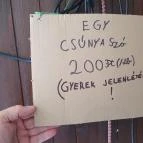 EGY
CSÚNYA SZÓ
200 Ft
(GYEREK JELENLÉTÉ
!